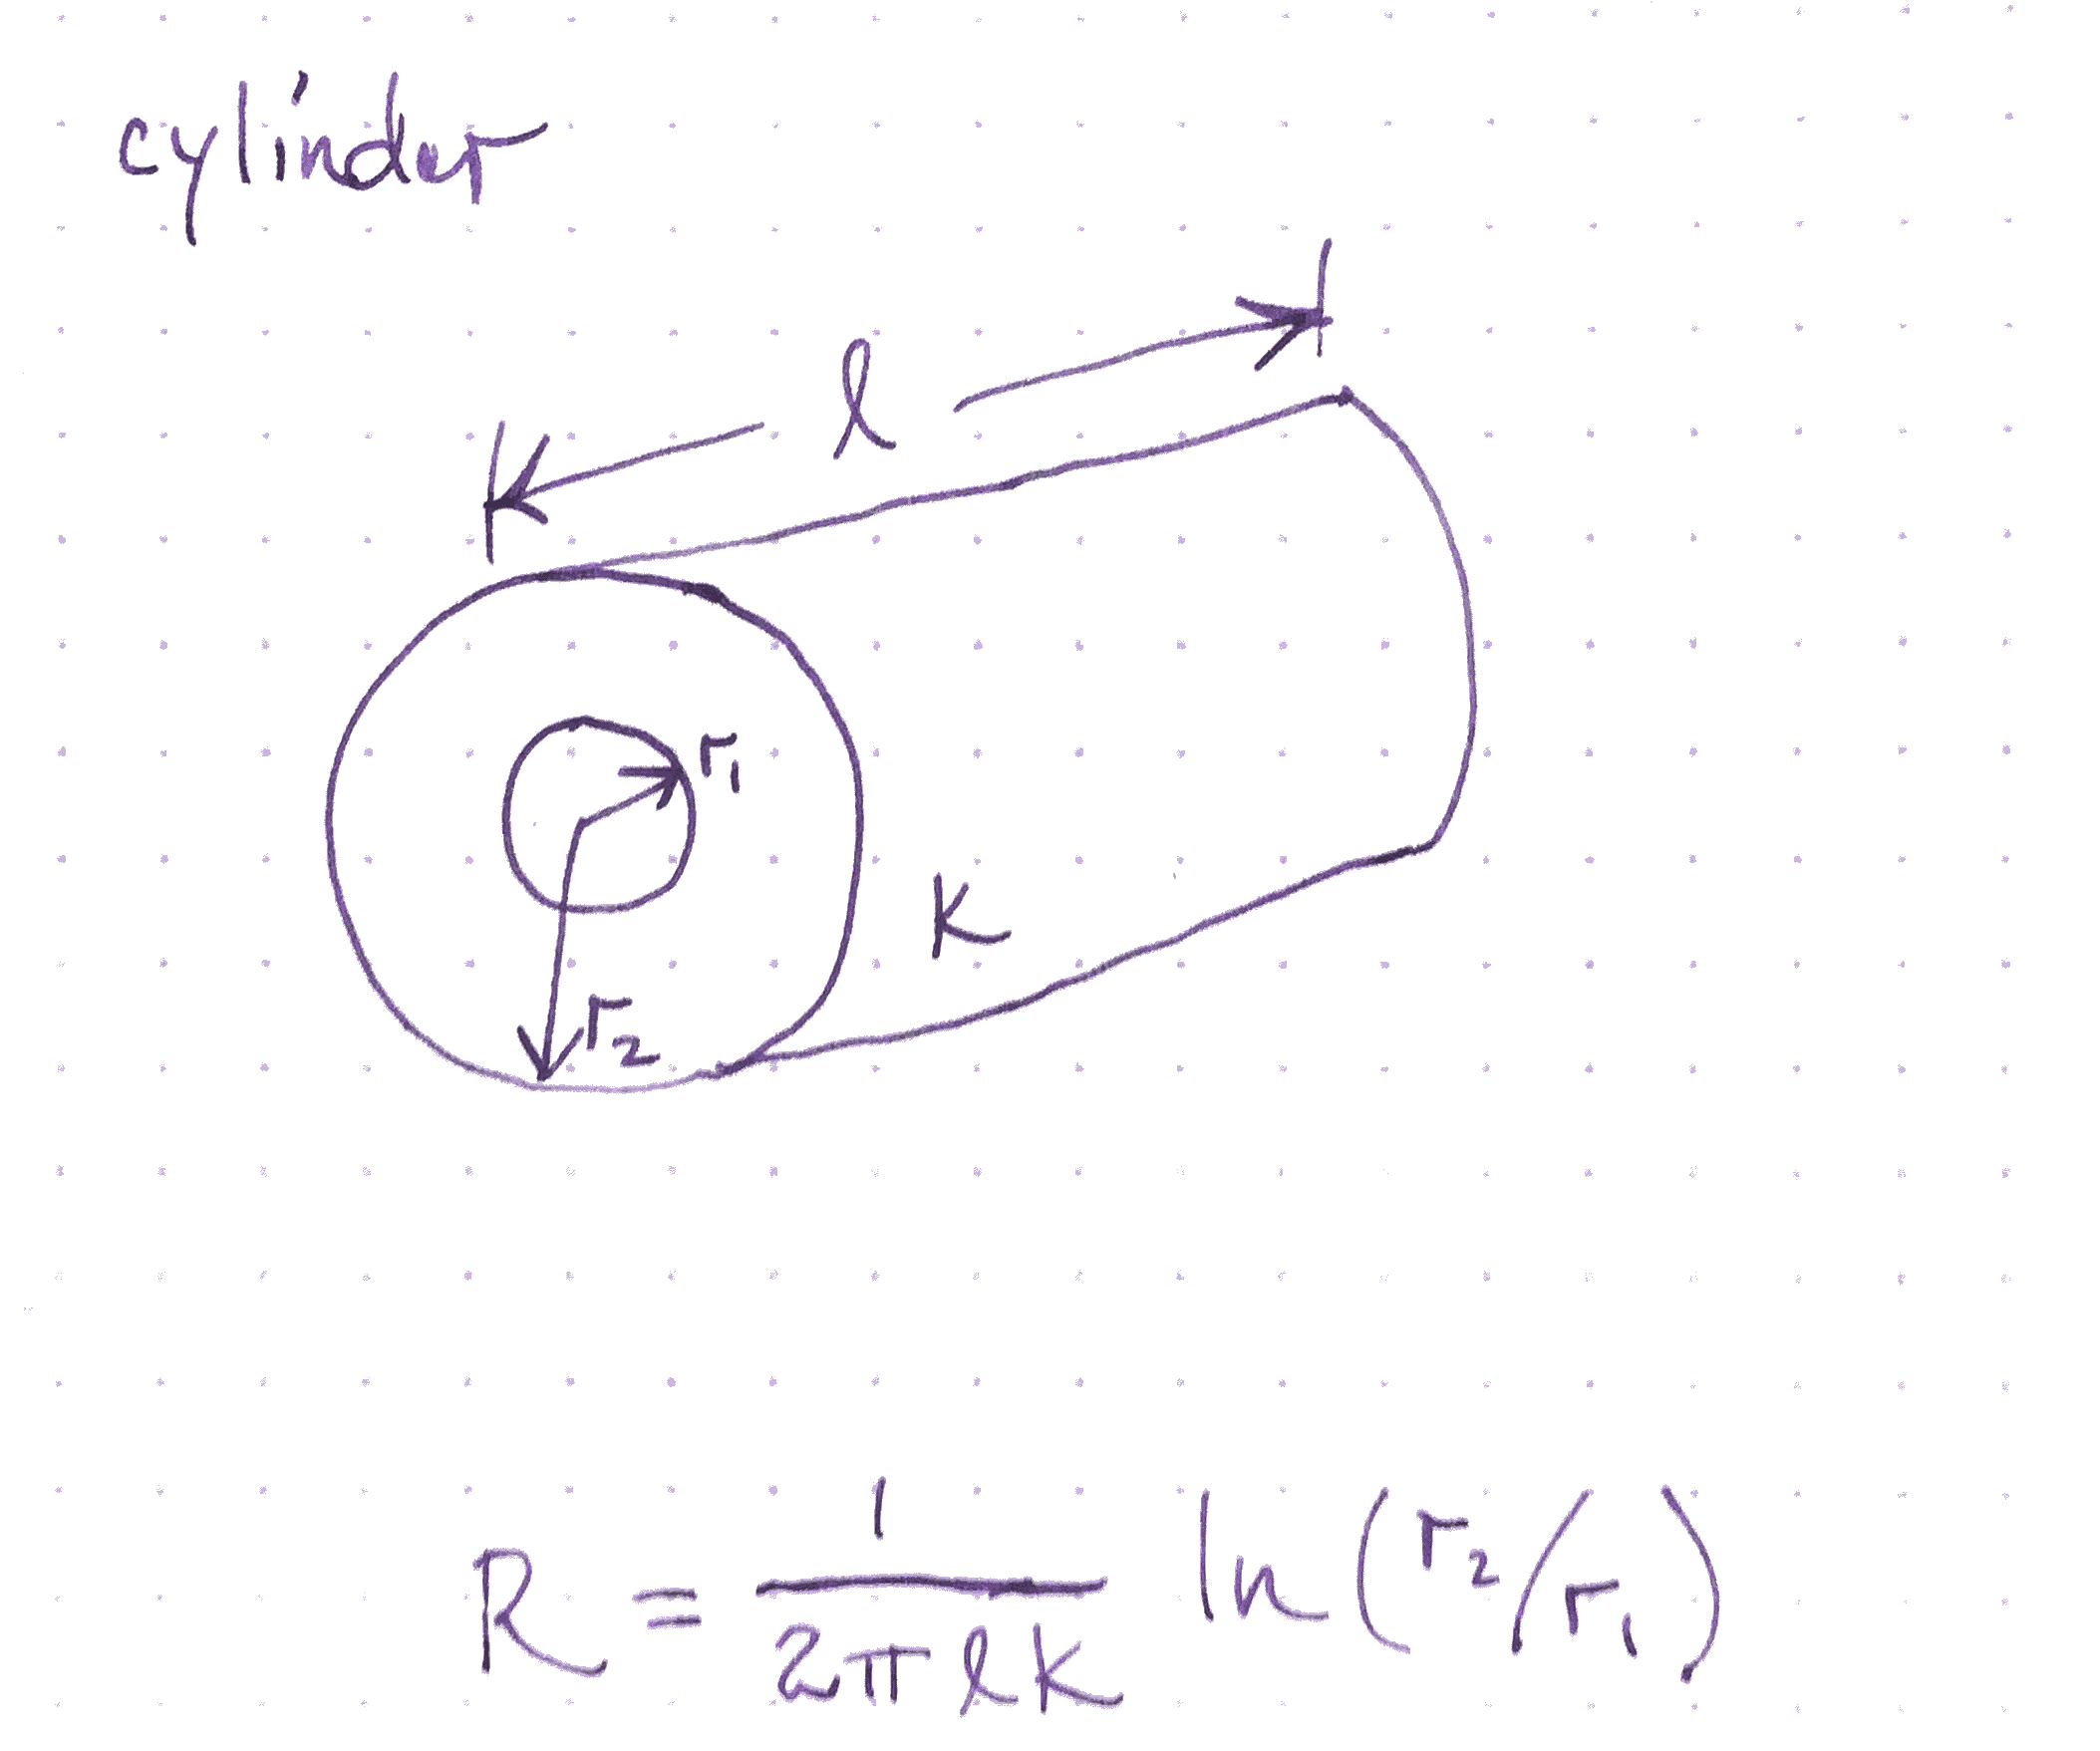 cylinder
l
r₁
k
r₂
R = 1/(2πlk) ln(r₂/r₁)